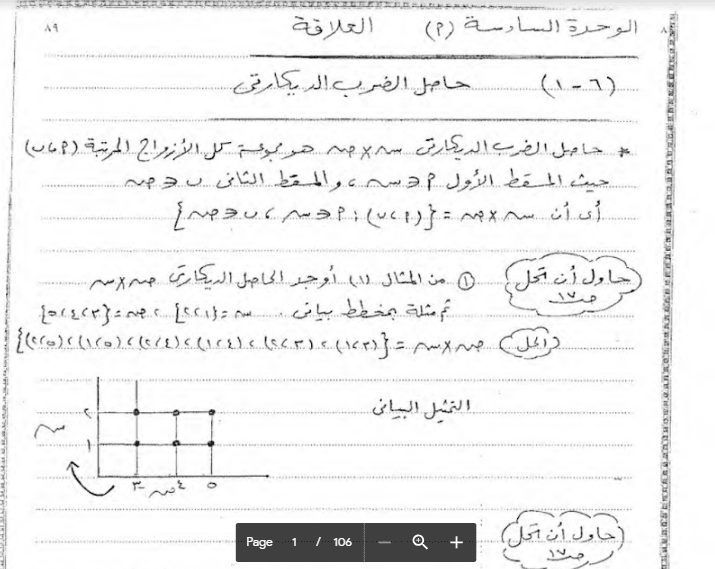 ٨٩
الوحدة السادسة (٩) العلاقة
(٦-١) حاصل الضرب الديكارتى
* حاصل الضرب الديكارتى س × ص هو مجموعة كل الأزواج المرتبة (٩، ب)
حيث المسقط الأول ٩ ∈ س، والمسقط الثانى ب ∈ ص
أى أن س × ص = {(٩، ب) : ٩ ∈ س، ب ∈ ص}
حاول أن تحل ص١٧
① من المثال (١) أوجد الحاصل الديكارتى ص × س
ثم مثلة بمخطط بيانى. س = {١، ٢}، ص = {٣، ٤، ٥}
الحل ص × س = {(٣، ١)، (٣، ٢)، (٤، ١)، (٤، ٢)، (٥، ١)، (٥، ٢)}
التمثيل البيانى
٢
س
١
٣ ٤ ٥
ص
حاول أن تحل
ص١٧
Page 1 / 106